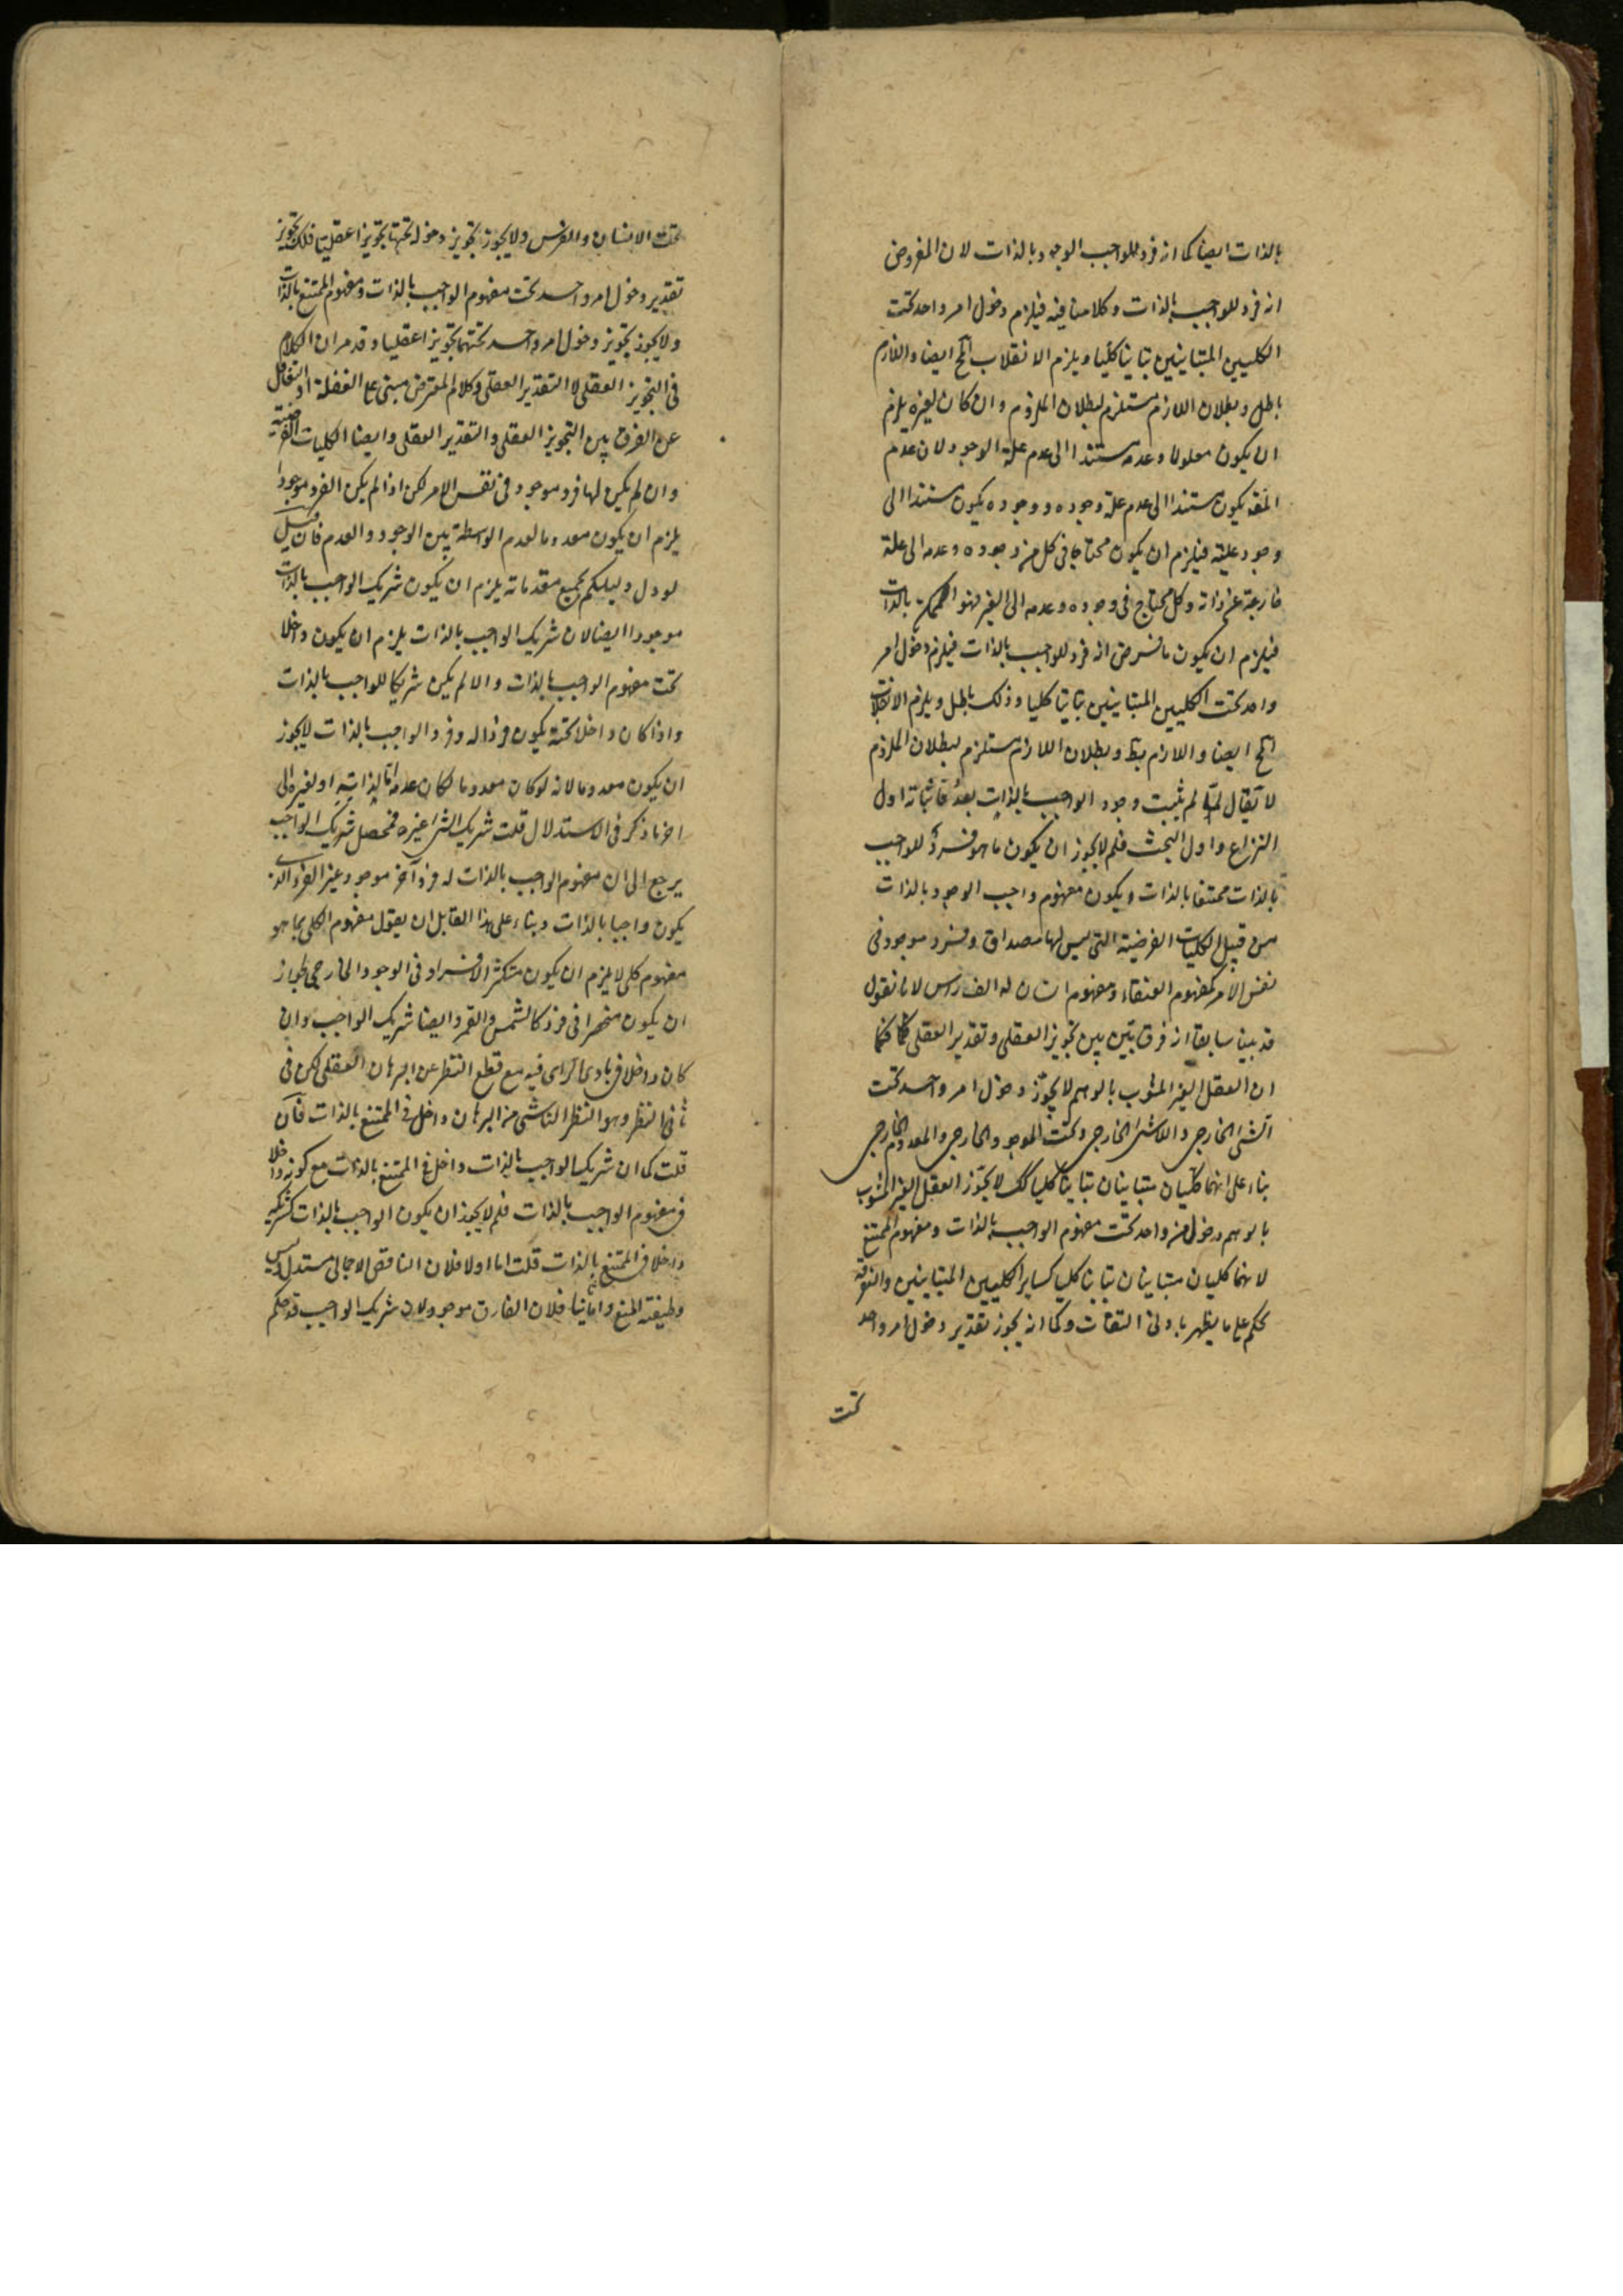 بالذات ايضا كما انه فرد للواجب الوجود بالذات لان المفروض
انه فرد للواجب بالذات وكلامنا فيه فيلزم دخول امر واحد تحت
الكليين المتباينين تباينا كليا ويلزم الانقلاب الخ ايضا واللازم
باطل وبطلان اللازم مستلزم لبطلان الملزوم وان كان لغيره يلزم
ان يكون معلولا وعدمه مستندا الى عدم علة الوجود لان عدم
يكون مستندا الى عدم علة وجوده ووجوده يكون مستندا الى
وجود علية فيلزم ان يكون محتاجا في كل من وجوده وعدمه الى علة
خارجة عن ذاته وكل محتاج في وجوده وعدمه الى الغير فهو الممكن بالذات
فيلزم ان يكون ما فرض انه فرد للواجب بالذات فيلزم دخول امر
واحد تحت الكليين المتباينين تباينا كليا وذلك باطل ويلزم الانقلاب
الخ ايضا واللازم بط وبطلان اللازم مستلزم لبطلان الملزوم
لا يقال لم يثبت وجود الواجب بالذات بعد فاثباته اول
النزاع واول البحث فلم لا يجوز ان يكون ما هو فرد للواجب
بالذات ممتنعا بالذات ويكون مفهوم واجب الوجود بالذات
من قبيل الكليات الفرضية التي ليس لها مصداق وفرد موجود في
نفس الامر كمفهوم العنقاء ومفهوم انسان له الف راس لانا نقول
قد بينا سابقا انه فرق بين بين تجويز العقلي وتقدير العقلي فكما
ان العقل الغير المشوب بالوهم لا يجوز دخول امر واحد تحت
الشئ الخارجي واللاشئ الخارجي وتحت الموجود الخارجي والمعدوم الخارجي
بناء على انهما كليان متباينان تباينا كليا كك لا يجوز العقل الغير المشوب
بالوهم دخول واحد تحت مفهوم الواجب بالذات ومفهوم الممتنع
لانهما كليان متباينان تباينا كليا كساير الكليين المتباينين والتفرقة
تحكم على ما يظهر بادنى التفات وكما انه يجوز تقدير دخول امر واحد
تحت
تحت الانسان والفرس ولا يجوز تجويز دخوله تحتها تجويزا عقليا فلك تجويز
تقدير دخول امر واحد تحت مفهوم الواجب بالذات ومفهوم الممتنع بالذات
ولا يجوز تجويز دخول امر واحد تحتهما تجويزا عقليا وقد مر ان الكلام
في التجويز العقلي لا التقدير العقلي وكلام المعترض مبنى على الغفلة او التغافل
عن الفرق بين التجويز العقلي والتقدير العقلي وايضا الكليات الفرضية
وان لم يكن لها فرد موجود في نفس الامر لكن اذا لم يكن الفرد موجودا
يلزم ان يكون معدوما لعدم الواسطة بين الوجود والعدم فان قيل
لو دل دليلكم بجميع مقدماته يلزم ان يكون شريك الواجب بالذات
موجودا ايضا لان شريك الواجب بالذات يلزم ان يكون داخلا
تحت مفهوم الواجب بالذات والا لم يكن شريكا للواجب بالذات
واذا كان داخلا تحته يكون فردا له وفرد الواجب بالذات لا يجوز
ان يكون معدوما لانه لو كان معدوما لكان عدمه اما لذاته او لغيره الى
اخر ما ذكر في الاستدلال قلت شريك الشئ غيره فمحصل شريك الواجب
يرجع الى ان مفهوم الواجب بالذات له فرد آخر موجود غير الفرد الذي
يكون واجبا بالذات وبناء على هذا القابل ان يقول مفهوم الكلي بما هو
مفهوم كلي لا يلزم ان يكون متكثر الافراد في الوجود الخارجي لجواز
ان يكون منحصرا في فرد كالشمس والقمر وايضا شريك الواجب وان
كان داخلا في بادي الراى فيه مع قطع النظر عن البرهان العقلي لكن في
ثاني النظر وهو النظر الناشئ من البرهان داخل في الممتنع بالذات فان
قلت كما ان شريك الواجب بالذات داخل في الممتنع بالذات مع كونه داخلا
في مفهوم الواجب بالذات فلم لا يجوز ان يكون الواجب بالذات كشريكه
داخلا في الممتنع بالذات قلت اما اولا فلان الناقض الاجمالي مستدل ليس
وظيفته المنع واما ثانيا فلان الفارق موجود لان شريك الواجب قد حكم